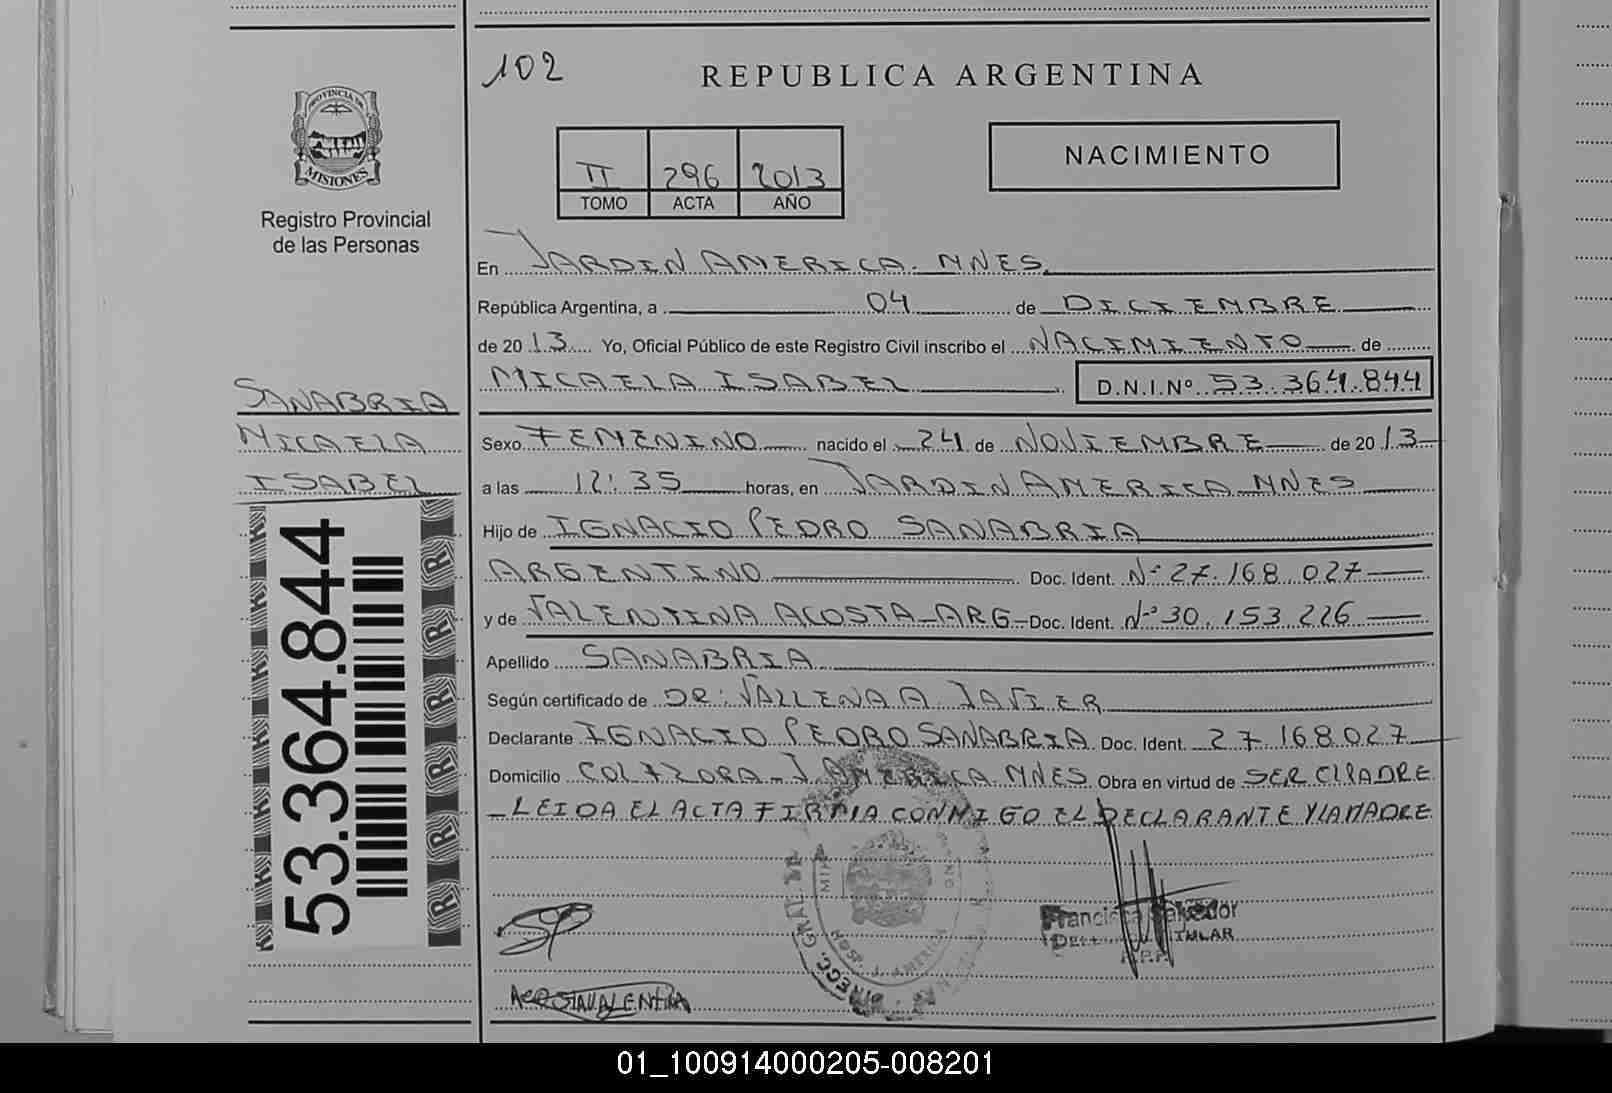 102
REPUBLICA ARGENTINA
PROVINCIA DE
MISIONES
Registro Provincial
de las Personas
II 296 2013
TOMO ACTA AÑO
NACIMIENTO
En JARDIN AMERICA. MNES.
República Argentina, a 04 de DICIEMBRE
de 20 13 Yo, Oficial Público de este Registro Civil inscribo el NACIMIENTO de
MICAELA ISABEL D.N.I.Nº 53.364.844
SANABRIA
MICAELA
ISABEL
53.364.844
Sexo FEMENINO nacido el 24 de NOVIEMBRE de 20 13
a las 12:35 horas, en JARDIN AMERICA MNES
Hijo de IGNACIO PEDRO SANABRIA
ARGENTINO Doc. Ident. Nº 27.168.027
y de VALENTINA ACOSTA - ARG - Doc. Ident. Nº 30.153.226
Apellido SANABRIA
Según certificado de DR: VALLENA A JAVIER
Declarante IGNACIO PEDRO SANABRIA Doc. Ident. 27.168.027
Domicilio COL FLORA - J. AMERICA. MNES. Obra en virtud de SER EL PADRE
- LEIDA EL ACTA FIRMA CONMIGO EL DECLARANTE Y LA MADRE
SP
HOSP. J. AMERICA
DIRECC. GRAL. DE
Salvador
TITULAR
R.P.P.
ACOSTA VALENTINA
01_100914000205-008201